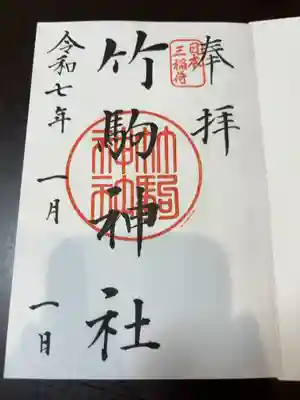 奉拝
日本
三稲荷
竹駒神社
竹駒
神社
令和七年一月一日